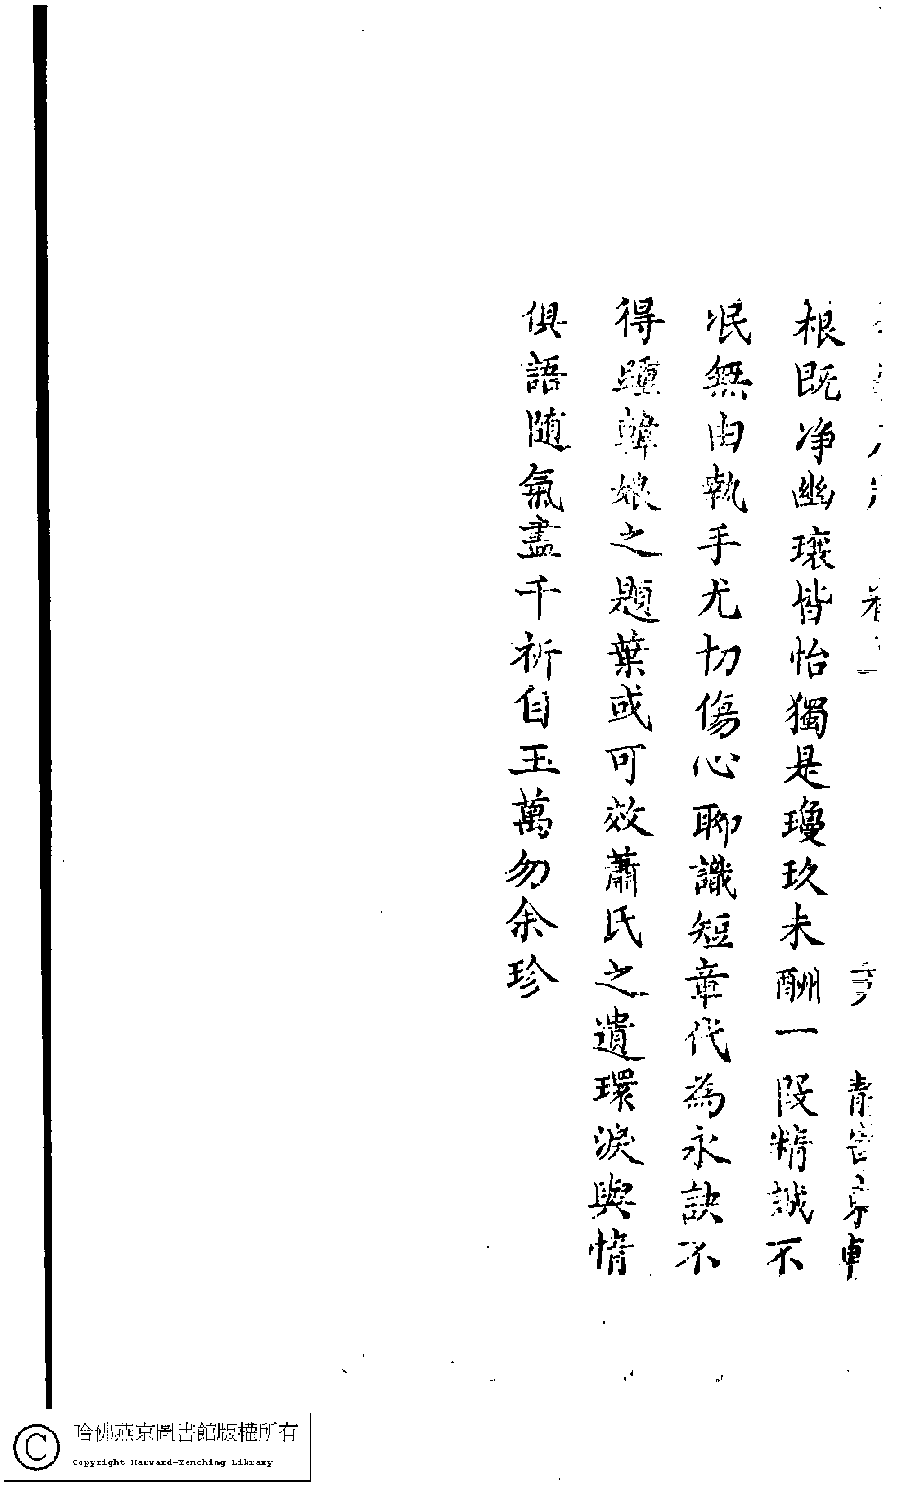 青霄亭車
根既凈幽瓌皆怡獨是瓊玖未酬一段精誠不
泯無由執手尤切傷心聊識短章代為永訣不
得踵韓娘之題葉或可效蕭氏之遺環淚與情
俱語隨氣盡千祈自玉萬勿余珍
哈佛燕京圖書館版權所有
Copyright Harvard-Yenching Library